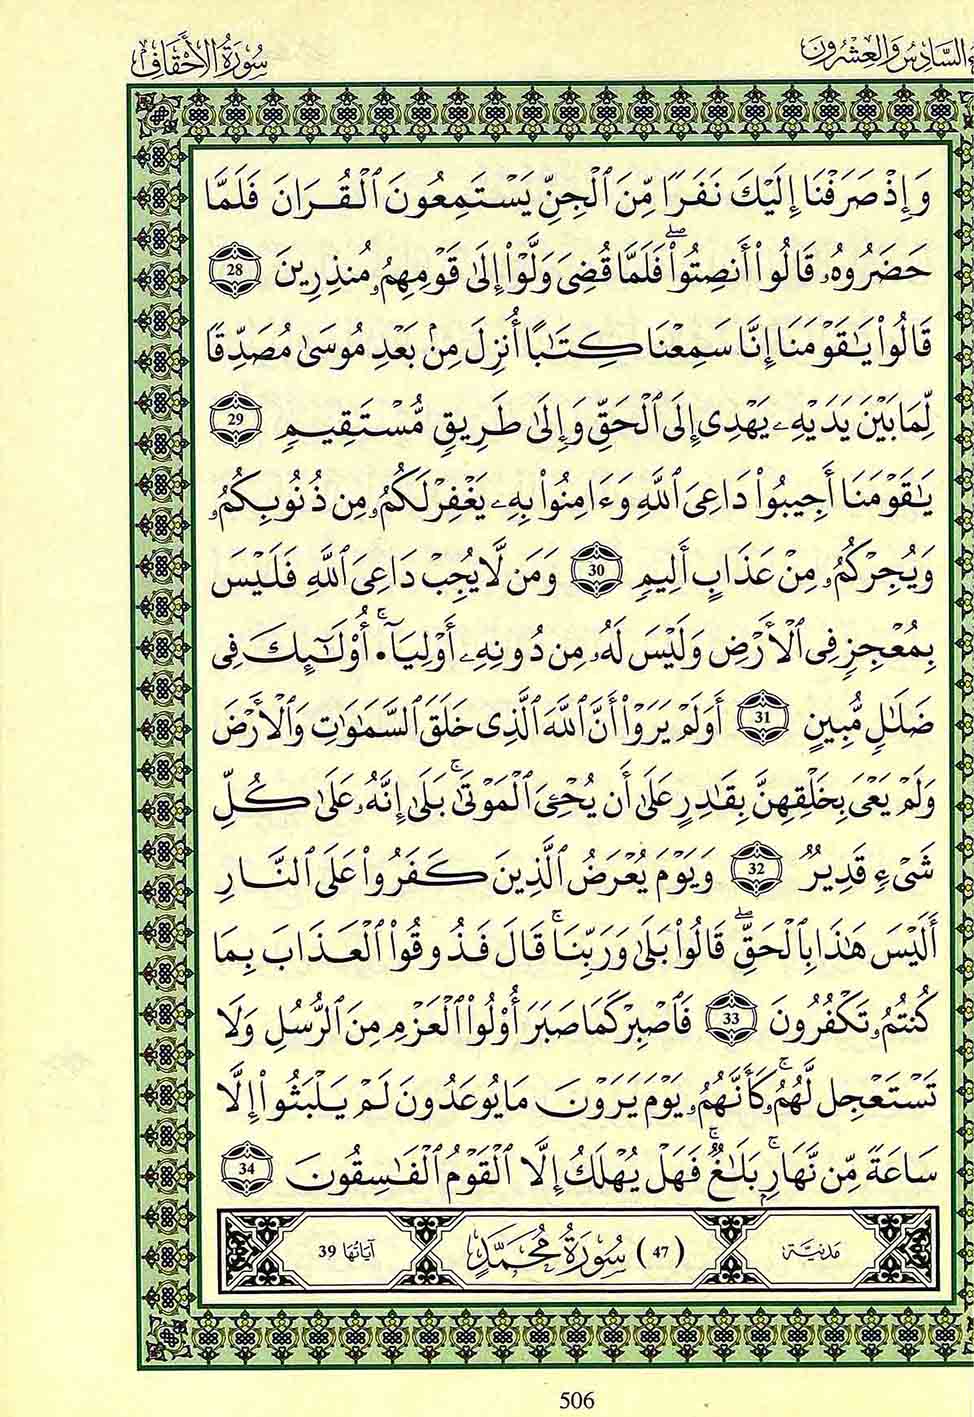 ءُ السَّادِسُ وَالْعِشْرُونَ
سُورَةُ الْأَحْقَافِ
وَإِذْ صَرَفْنَا إِلَيْكَ نَفَرًا مِّنَ اَ۬لْجِنِّ يَسْتَمِعُونَ اَ۬لْقُرَانَ فَلَمَّا
حَضَرُوهُۥ قَالُوٓاْ أَنصِتُواْۖ فَلَمَّا قُضِيَ وَلَّوِاْ اِلَىٰ قَوْمِهِمُۥ مُنذِرِينَ 28
قَالُواْ يَٰقَوْمَنَا إِنَّا سَمِعْنَا كِتَٰبًا أُنزِلَ مِنۢ بَعْدِ مُوسَىٰ مُصَدِّقًا
لِّمَا بَيْنَ يَدَيْهِۦ يَهْدِي إِلَى اَ۬لْحَقِّ وَإِلَىٰ طَرِيقٍ مُّسْتَقِيمٍ 29
يَٰقَوْمَنَا أَجِيبُواْ دَاعِيَ اَ۬للَّهِ وَءَامِنُواْ بِهِۦ يَغْفِرْ لَكُمُۥ مِن ذُنُوبِكُمُۥ
وَيُجِرْكُمُۥ مِنْ عَذَابٍ أَلِيمٍ 30 وَمَن لَّا يُجِبْ دَاعِيَ اَ۬للَّهِ فَلَيْسَ
بِمُعْجِزٍ فِي اِ۬لْأَرْضِ وَلَيْسَ لَهُۥ مِن دُونِهِۦ أَوْلِيَآءُۚ اُوْلَٰٓئِكَ فِي
ضَلَٰلٍ مُّبِينٍ 31 أَوَلَمْ يَرَوْاْ أَنَّ اَ۬للَّهَ اَ۬لَّذِي خَلَقَ اَ۬لسَّمَٰوَٰتِ وَالْأَرْضَ
وَلَمْ يَعْيَ بِخَلْقِهِنَّ بِقَٰدِرٍ عَلَىٰ أَن يُحْـِۧيَ اَ۬لْمَوْتَىٰۚ بَلَىٰ إِنَّهُۥ عَلَىٰ كُلِّ
شَيْءٍ قَدِيرٌ 32 وَيَوْمَ يُعْرَضُ اُ۬لَّذِينَ كَفَرُواْ عَلَى اَ۬لنَّارِ
أَلَيْسَ هَٰذَا بِالْحَقِّۖ قَالُواْ بَلَىٰ وَرَبِّنَاۚ قَالَ فَذُوقُواْ اُ۬لْعَذَابَ بِمَا
كُنتُمُۥ تَكْفُرُونَ 33 فَاصْبِرْ كَمَا صَبَرَ أُوْلُواْ اُ۬لْعَزْمِ مِنَ اَ۬لرُّسُلِ وَلَا
تَسْتَعْجِل لَّهُمُۥۚ كَأَنَّهُمُۥ يَوْمَ يَرَوْنَ مَا يُوعَدُونَ لَمْ يَلْبَثُواْ إِلَّا
سَاعَةً مِّن نَّهَارٍۚ بَلَٰغٌۚ فَهَلْ يُهْلَكُ إِلَّا اَ۬لْقَوْمُ اُ۬لْفَٰسِقُونَ 34
مَدَنِيَّة (47) سُورَةُ مُحَمَّدٍ آيَاتُهَا 39
506